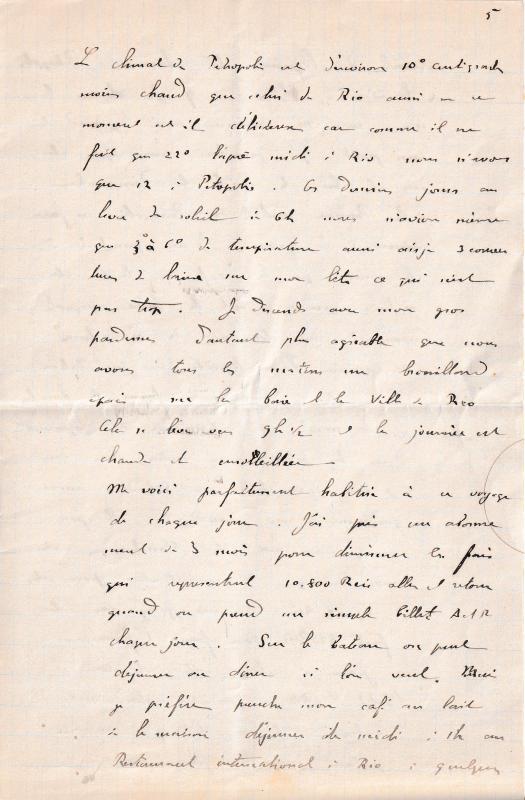 5
Le climat de Petropolis est d'environ 10° centigrade
moins chaud que celui de Rio aussi en ce
moment est il délicieux car comme il ne
fait que 22° l'après midi à Rio nous n'avons
que 12 à Petropolis. Ces derniers jours au
lever du soleil à 6h nous n'avions même
que 3° à 6° de température aussi ai-je 3 couver
tures de laine sur mon lit, ce qui n'est
pas trop. Je descends avec mon gros
pardessus d'autant plus agréable que nous
avons tous les matins un brouillard
épais sur la baie et la Ville de Rio
Cela se lève vers 9h 1/2 et la journée est
chaude et ensoleillée
Me voici parfaitement habitué à ce voyage
de chaque jour. J'ai pris un abonne
ment de 3 mois pour diminuer les frais
qui représentent 10.800 Reis aller et retour
quand on prend un simple billet A et R
chaque jour. Sur le bateau on peut
déjeuner ou dîner si l'on veut.
je préfère prendre mon café au lait
à la maison déjeuner de midi à 1h au
Restaurant international à Rio à quelques